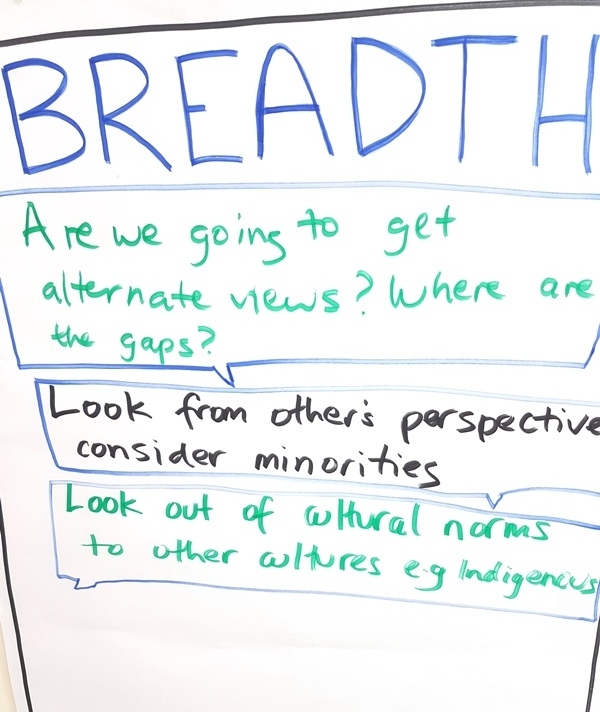 BREADTH
Are we going to get
alternate views? Where are
the gaps?
Look from other's perspective
consider minorities
Look out of cultural norms
to other cultures e.g Indigenous